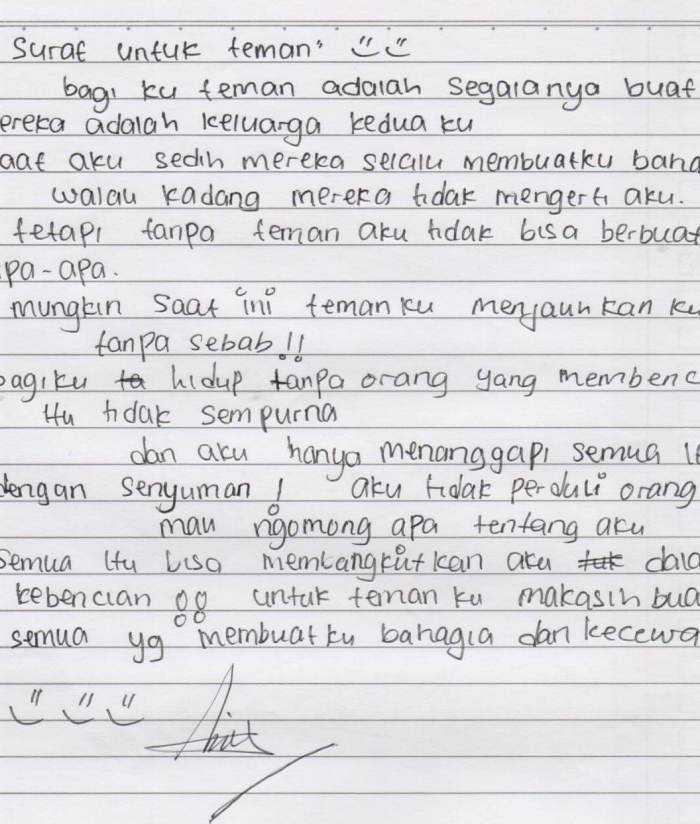 Surat untuk teman²
bagi ku teman adalah segalanya buat
ereka adalah keluarga kedua ku
aat aku sedih mereka selalu membuatku baha
walau kadang mereka tidak mengerti aku.
tetapi tanpa teman aku tidak bisa berbuat
pa-apa.
mungkin saat ini teman ku menjauhkan ku
tanpa sebab!!
bagiku ta hidup tanpa orang yang membenc
itu tidak sempurna
dan aku hanya menanggapi semua it
dengan senyuman! aku tidak perduli orang
mau ngomong apa tentang aku
semua itu bisa membangkitkan aku dala
kebencian !! untuk teman ku makasih bua
semua yg membuat ku bahagia dan kecewa